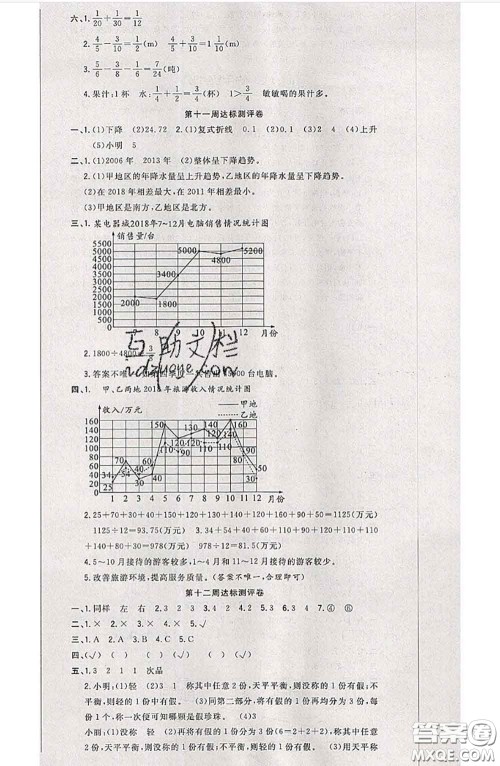 六、1. 1/20+1/30=1/12
2. 4/5-3/10=1/2(m) 4/5+3/10=1 1/10(m)
3. 5/6-3/8-1/6=7/24(吨)
4. 果汁:1杯 水: 1/4+1/2=3/4(杯) 1>3/4 敏敏喝的果汁多。
第十一周达标测评卷
一、1.(1)下降 (2)24.72 2.(1)复式折线 0.1 (2)0.1 (3)2 4 (4)上升
(5)小明 5
二、1.(1)2006年 2013年 (2)整体呈下降趋势。
2.(1)甲地区的年降水量呈上升趋势,乙地区的年降水量呈下降趋势。
(2)在2018年相差最大,在2011年相差最小。
(3)甲地区是南方,乙地区是北方。
三、1.某电器城2018年7~12月电脑销售情况统计图
销售量/台
5500
5000
4500
4000
3500
3000
2500
2000
1500
1000
500
0
2000
1800
5000
4800
5200
8 9 10 11 12 月份
2. 1800÷4800=3/8
3.答案不唯一
00台电脑。
四、 甲、乙两地2018年旅游收入情况统计图
收入/万元
甲地
乙地
1 2 3 4 5 6 7 8 9 10 11 12 月份
2. 25+70+30+40+160+120+130+140+120+160+90+40=1125(万元)
1125÷12=93.75(万元) 3.34+54+40+60+110+90+120+110+110
+140+80+30=978(万元) 978÷12=81.5(万元)
4. 5~10月接待的游客较多,1~4月和11~12月接待的游客较少。
5.改善旅游环境,提高服务质量。(答案不唯一,合理即可)
第十二周达标测评卷
一、1.同样 左 右 2.3 2 3 4.2 5.3 6.3 7.④ ⑥
二、1.A 2.A 3.B 4.C 5.B
四、(√) ( ) (√) ( ) (√)
五、1.3 2 1 1 次品
2.小明:(1)轻 (2)3 1 称其中任意2份,天平平衡,则没称的1份有假;不
平衡,则轻的1份有假。 (3)同第二部分,将有假的1份再均分为3份,每
份1个,称一次便可知哪颗是假珍珠。 (4)3
小丽:(1)轻 (2)再将有假的1份分为3份(6=2+2+2),称其中任意
2份,天平平衡,则没称的1份有假;不平衡,则轻的1份有假。 (3)用天平称
互助文档